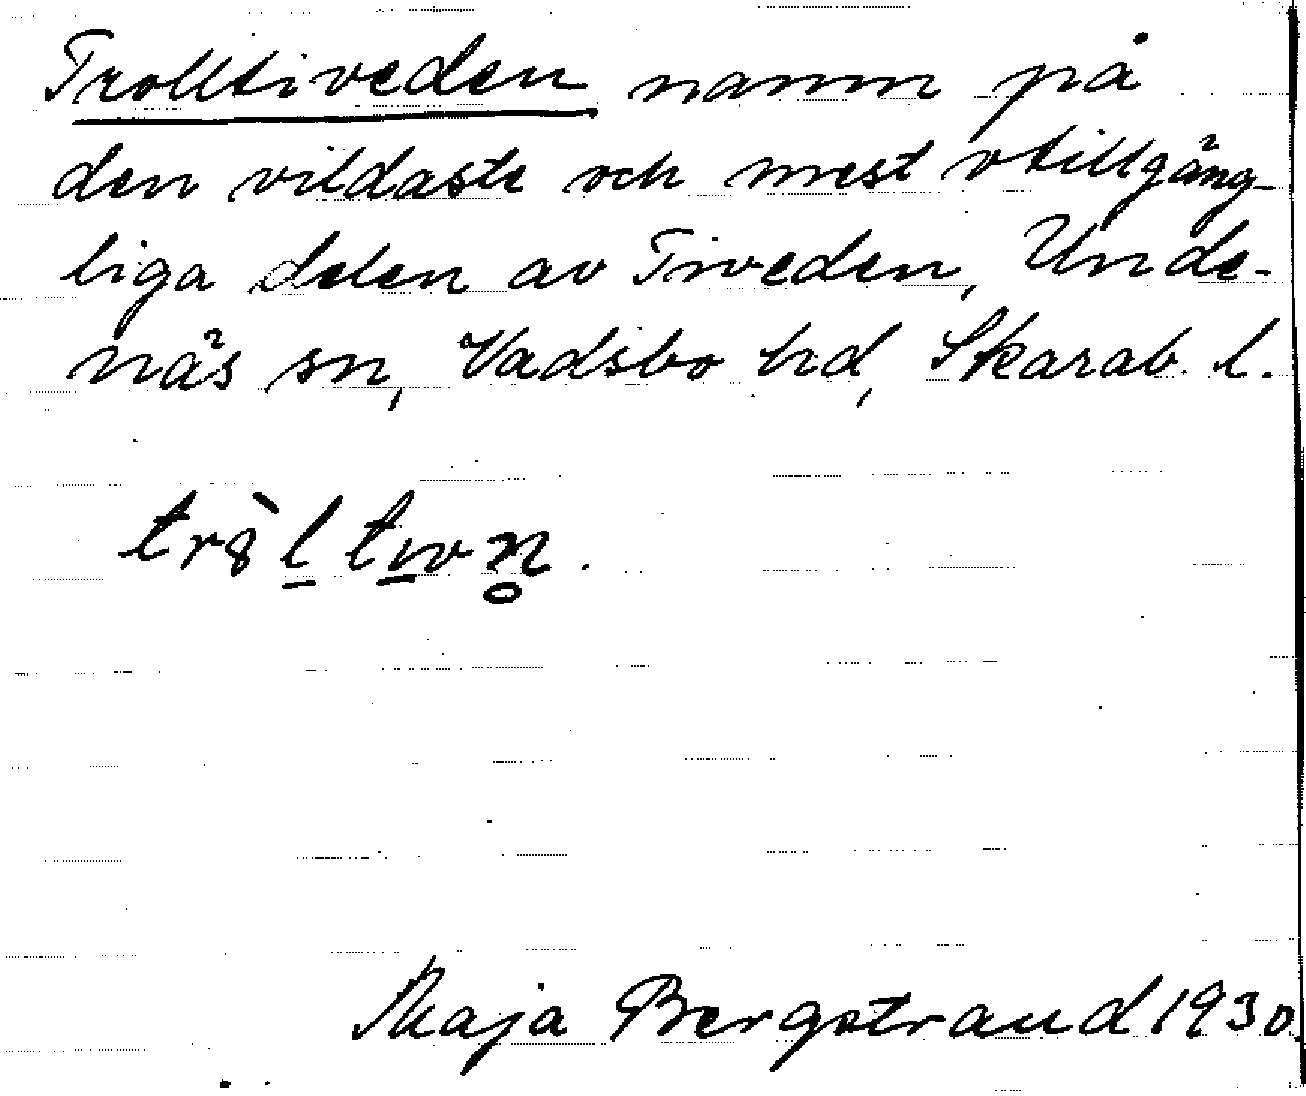 Trolltiveden namn på
den vildaste och mest otillgäng-
liga delen av Tiveden, Unde-
näs sn, Vadsbo hd, Skarab. l.
Maja Bergstrand 1930.